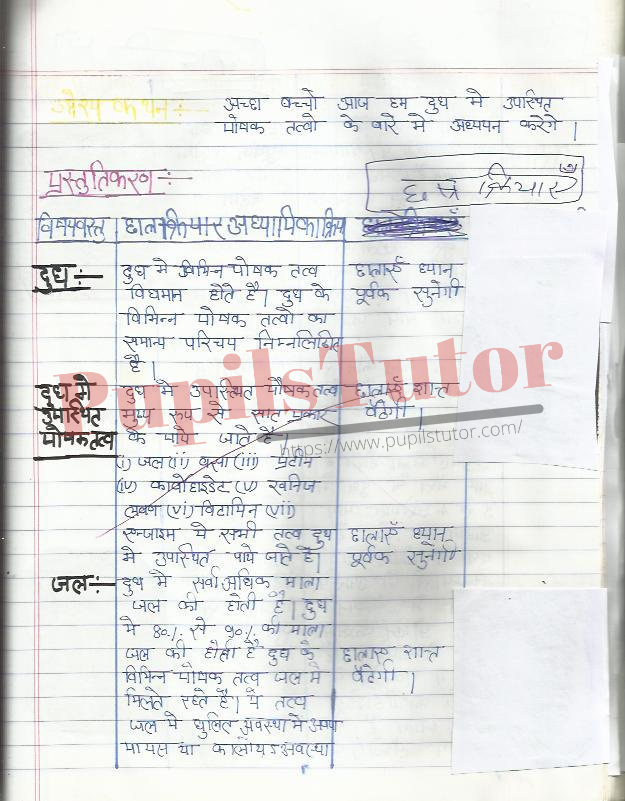 उद्देश्य कथन :- अच्छा बच्चों आज हम दुध मे उपस्थित
पोषक तत्वो के बारे मे अध्ययन करेगे ।
प्रस्तुतिकरण :-
क्रियाएँ
विषयवस्तु
दुध :- दुध मे विभिन्न पोषक तत्व छात्राएँ ध्यान
विधमान होते है। दुध के पूर्वक सुनेगी
विभिन्न पोषक तत्वो का
समान्य परिचय निम्नलिखित
है।
PupilsTutor
दुध मे दुध मे उपस्थित पोषक तत्व छात्राएँ शान्त
उपस्थित मुख्य रुप से सात प्रकार बैठेगी ।
पोषक तत्व के पाये जाते है ।
https://www.pupilstutor.com/
(i) जल (ii) वसा (iii) प्रटीन
(iv) कार्वोहाइडेट (v) खनिज
लवण (vi) विटामिन (vii)
एन्जाइम ये सभी तत्व दुध छात्राएँ ध्यान
मे उपस्थित पाये जाते है। पूर्वक सुनेगी
जल :- दुध मे सर्वाअधिक मात्रा
जल की होती है। दुध
मे 80% से 90% की मात्रा
जल की होती है दुध के छात्राएँ शान्त
विभिन्न पोषक तत्व जल मे बैठेगी ।
मिलते रहते है। ये तत्व
जल मे घुलित अवस्था मे
या अवस्था